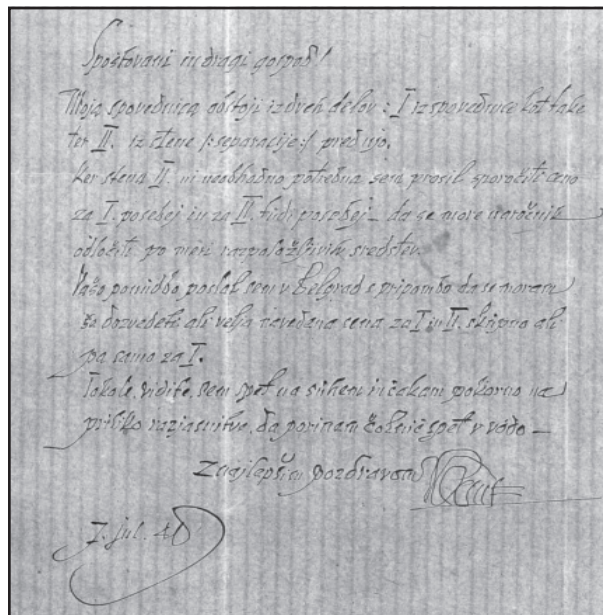 Spoštovani in dragi gospod!
Moja spovednica obstoji iz dveh delov: I iz spovednice kot take
ter II. iz stene /: separacije :/ pred njo.
Ker stena II. ni neobhodno potrebna sem prosil sporočiti ceno
za I. posebej in za II. tudi posebej – da se more naročnik
odločiti po meri razpoložljivih sredstev.
Vašo ponudbo poslal sem v Belgrad s pripombo da se moram
še dozvedeti ali velja navedena cena za I in II. skupno ali
pa samo za I.
Tokole, vidite, sem spet na suhem in čakam pokorno na
pismo razjasnitve, da porinem čolnič spet v vodo –
Z najlepšim pozdravom
7. jul. 40